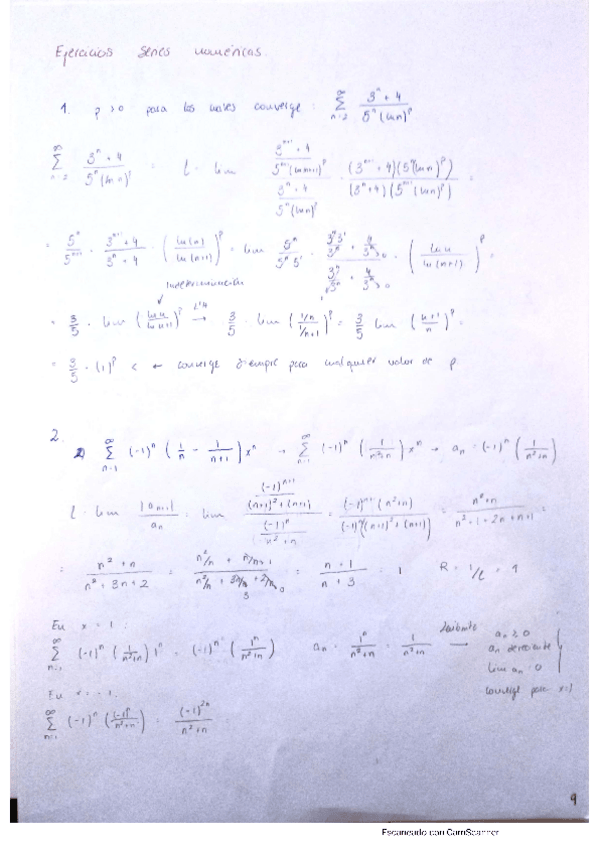 Ejercicios series numéricas.
1. p>0 para los cuales converge: ∑_{n=2}^∞ (3^n + 4)/(5^n (ln n)^p)
∑_{n=2}^∞ (3^n + 4)/(5^n (ln n)^p) = l = lim ((3^{n+1} + 4)/(5^{n+1} (ln n+1)^p))/((3^n + 4)/(5^n (ln n)^p)) = ((3^{n+1} + 4)(5^n (ln n)^p))/((3^n + 4)(5^{n+1} (ln n)^p)) =
= 5^n/5^{n+1} · (3^{n+1} + 4)/(3^n + 4) · (ln(n)/ln(n+1))^p = lim 5^n/(5^n 5^1) · (3^n 3^1/3^n + 4/3^n →0)/(3^n/3^n + 4/3^n →0) · (ln n/ln(n+1))^p =
indeterminación
= 3/5 · lim (ln n/ln n+1)^p →^{L'H} 3/5 · lim ((1/n)/(1/n+1))^p = 3/5 lim ((n+1)/n)^p =
= 3/5 · (1)^p < ← converge siempre para cualquier valor de p
2.
a) ∑_{n=1}^∞ (-1)^n (1/n - 1/(n+1)) x^n → ∑_{n=1}^∞ (-1)^n (1/(n²+n)) x^n → a_n = (-1)^n (1/(n²+n))
l = lim |a_{n+1}|/a_n = lim ((-1)^{n+1}/((n+1)² + (n+1)))/((-1)^n/(n²+n)) = ((-1)^{n+1} (n²+n))/((-1)^n ((n+1)² + (n+1))) = (n²+n)/(n²+1+2n+n+1) =
= (n² + n)/(n² + 3n + 2) = (n²/n + n/n →1)/(n²/n + 3n/n →3 + 2/n →0) = (n+1)/(n+3) = 1 R = 1/l = 1
En x = 1:
∑_{n=1}^∞ (-1)^n (1/(n²+n)) 1^n = (-1)^n (1^n/(n²+n)) a_n = 1^n/(n²+n) = 1/(n²+n) → Leibnitz a_n ≥ 0
a_n decreciente
lim a_n = 0
converge para x=1
En x = -1:
∑_{n=1}^∞ (-1)^n ((-1)^n/(n²+n)) = (-1)^{2n}/(n²+n) =
9
Escaneado con CamScanner